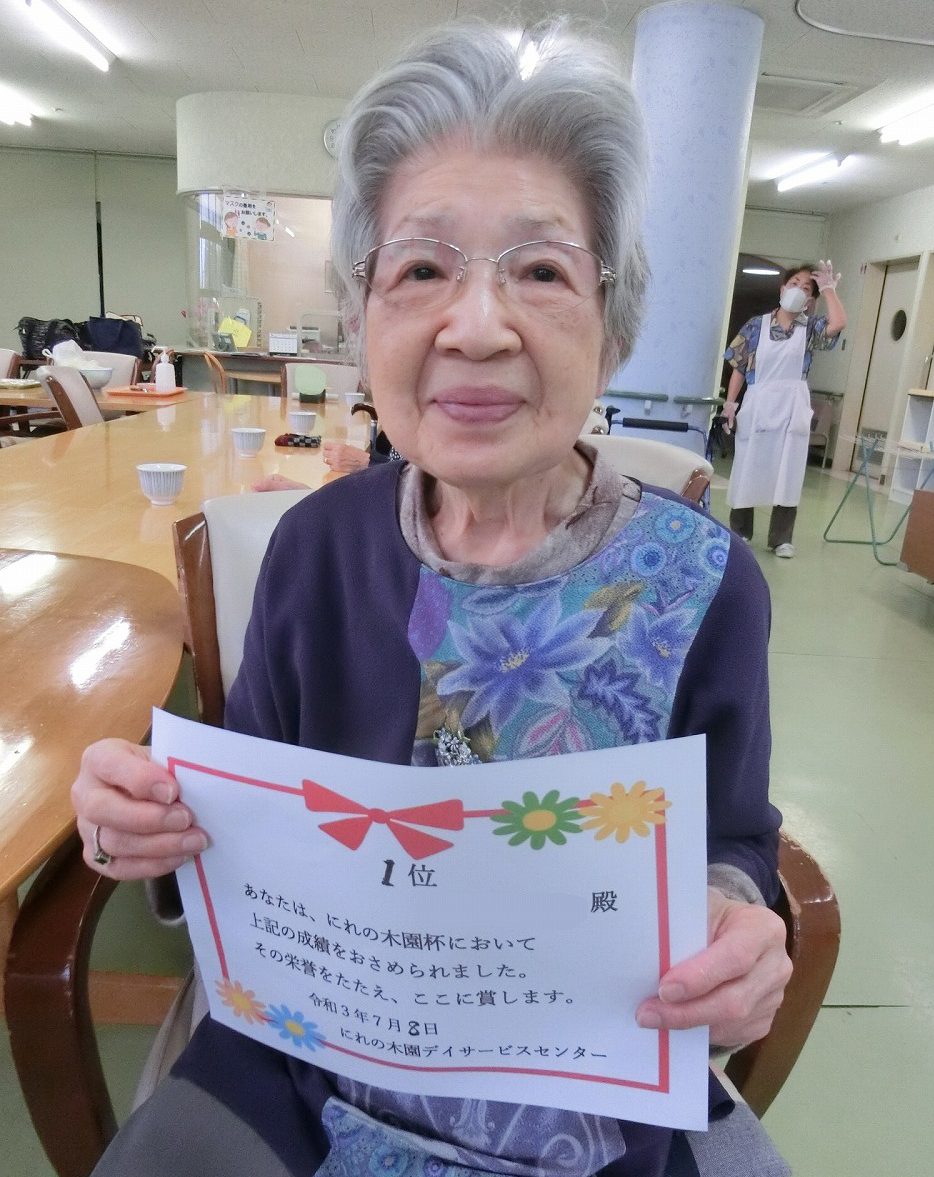 マスクの着用を
お願いします
1位
殿
あなたは、にれの木園杯において
上記の成績をおさめられました。
その栄誉をたたえ、ここに賞します。
令和3年7月8日
にれの木園デイサービスセンター